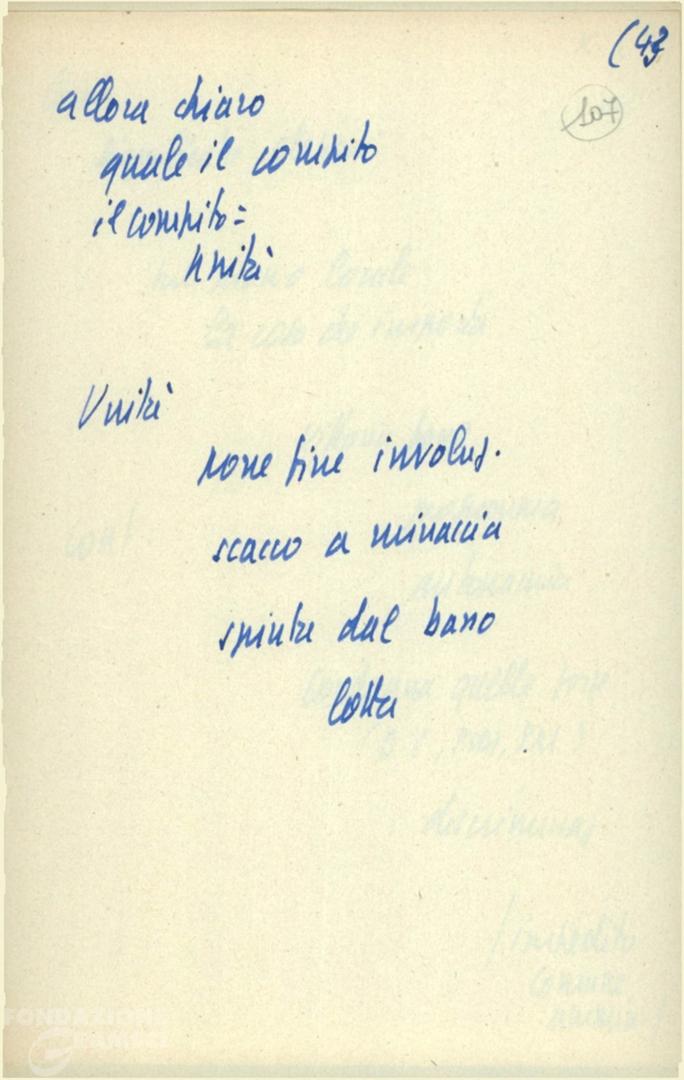 (43
107
allora chiaro
quale il compito
il compito =
unità
Unità
pone fine involuz.
scacco a minaccia
spinta dal basso
lotta
FONDAZIONE
GRAMSCI